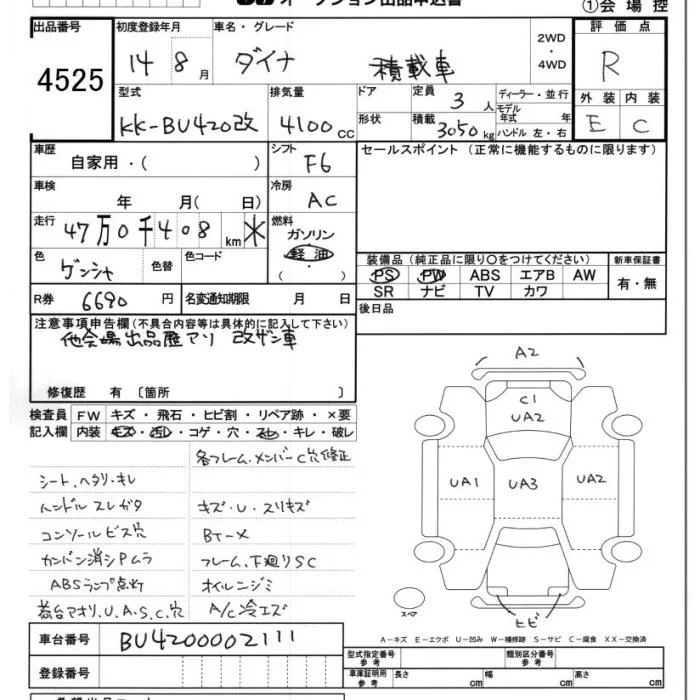 オークション出品申込書
①会場控
出品番号
4525
初度登録年月
14 8月
車名・グレード
ダイナ 積載車
2WD
・
4WD
評価点
R
型式
KK-BU420改
排気量
4100cc
ドア
形状
定員 3人
積載 3050kg
ディーラー・並行
モデル年式 年
ハンドル 左・右
外装 内装
E C
車歴
自家用・( )
シフト
F6
セールスポイント (正常に機能するものに限ります)
車検
年 月( 日)
冷房
AC
走行
47万0千408km
燃料
ガソリン
軽油
( )
色
ゲンシャ
色替
色コード
装備品 (純正品に限り〇をつけてください)
新車保証書
PS PW ABS エアB AW
SR ナビ TV カワ
有・無
R券 6690円
名変通知期限 月 日
後日品
注意事項申告欄(不具合内容等は具体的に記入して下さい)
他会場出品歴アリ 改ザン車
修復歴 有〔箇所 〕
検査員 FW キズ・飛石・ヒビ割・リペア跡・×要
記入欄 内装 キズ・汚レ・コゲ・穴・スレ・キレ・破レ
各フレーム、メンバーC穴修正
シート、ヘタリ・キレ
ハンドルスレガタ
キズ・U・スリキズ
コンソールビス穴
カンバン消シPムラ
フレーム、下廻りSC
ABSランプ点灯
オイルニジミ
荷台アオリ、U.A.S.C.穴
A/C冷エズ
A2
C1
UA2
UA1
UA3
UA2
スペア
ヒビ
A-キズ E-エクボ U-凹み W-補修跡 S-サビ C-腐食 XX-交換済
車台番号
BU4200002111
登録番号
型式指定番号
参考
類別区分番号
参考
車庫証明用
参考
長さ cm
幅 cm
高さ cm